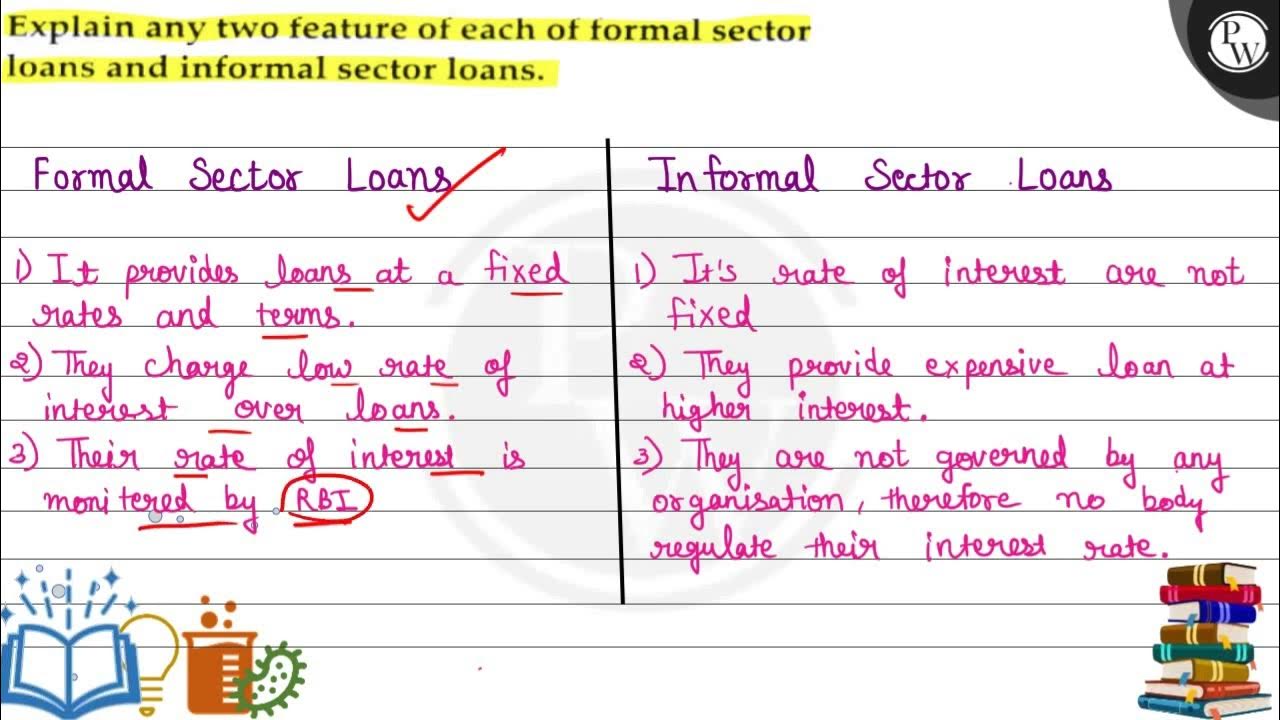 Explain any two feature of each of formal sector
loans and informal sector loans.
PW
Formal Sector Loans
1) It provides loans at a fixed
rates and terms.
2) They charge low rate of
interest over loans.
3) Their rate of interest is
monitered by RBI
Informal Sector Loans
1) It's rate of interest are not
fixed
2) They provide expensive loan at
higher interest.
3) They are not governed by any
organisation, therefore no body
regulate their interest rate.